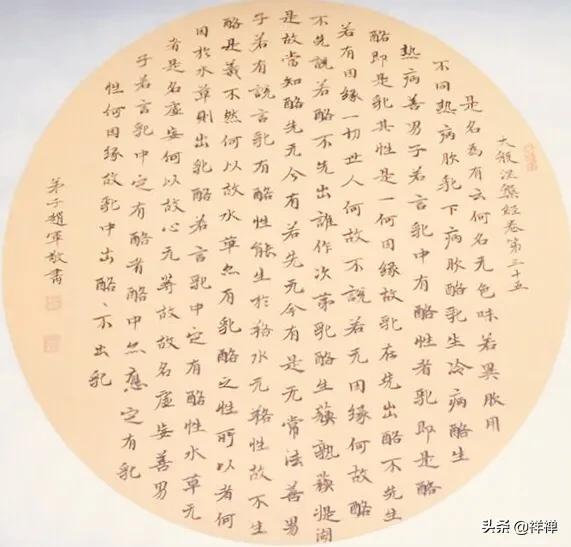 大般涅槃经卷第三十五
是名為有云何名无色味若異服用
不同热病服乳下病服酪乳生冷病酪生
熱病善男子若言乳中有酪性者乳即是酪
酪即是乳其性是一何因缘故乳在先出酪不先生
若有因缘一切世人何故不說若无因缘何故酪
不先說若酪不先出誰作次第乳酪生蘓熟蘓醍湖
是故當知酪先无今有若先无今有是无常法善男
子若有說言乳有酪性能生於酪水无酪性故不生
酪是義不然何以故水草亦有乳酪之性所以者何
因於水草則出乳酪若言乳中定有酪性水草无
者是名虚妄何以故心无等故故名虚妄善男
子若言乳中定有酪者酪中亦應定有乳
性何因缘故乳中出酪々不出乳
弟子趙軍敬書
头条 @祥禅